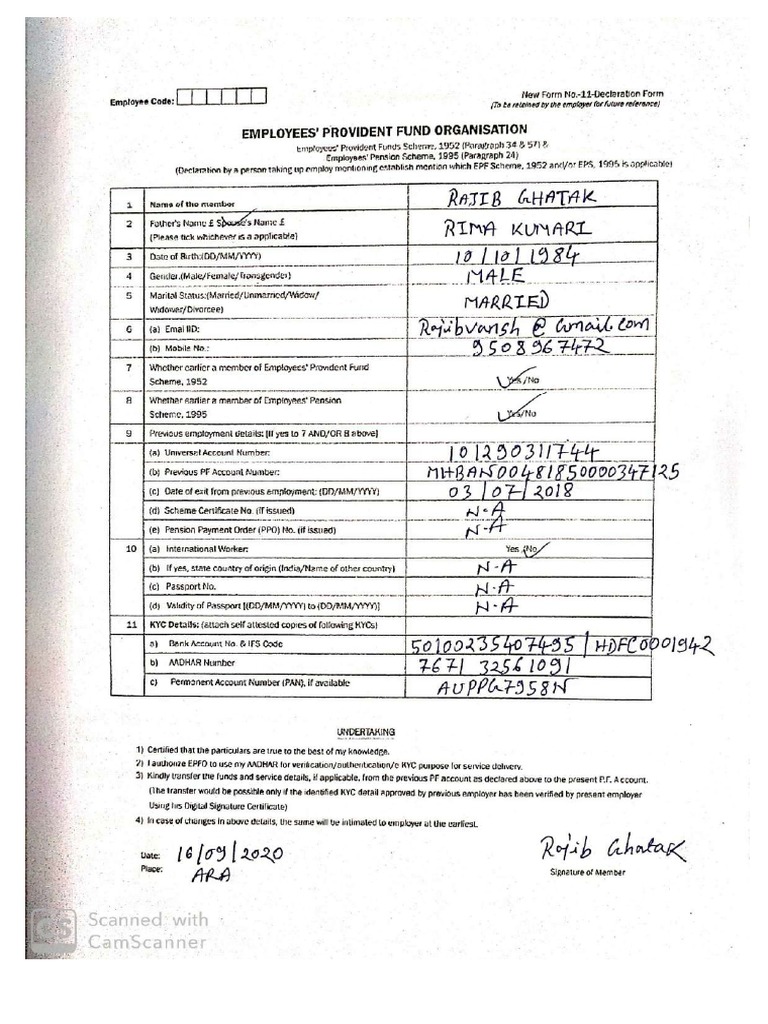 New Form No.-11-Declaration Form
Employee Code:
(To be retained by the employer for future reference)
EMPLOYEES' PROVIDENT FUND ORGANISATION
Employees' Provident Funds Scheme, 1952 (Paragraph 34 & 57) &
Employees' Pension Scheme, 1995 (Paragraph 24)
(Declaration by a person taking up employ mentioning establish mention which EPF Scheme, 1952 and/or EPS, 1995 is applicable)
1 Name of the member RAJIB GHATAK
2 Father's Name £ Spouse's Name £ RIMA KUMARI
(Please tick whichever is a applicable)
3 Date of Birth:(DD/MM/YYYY) 10/10/1984
4 Gender:(Male/Female/Transgender) MALE
5 Marital Status:(Married/Unmarried/Widow/ MARRIED
Widower/Divorcee)
6 (a) Email ID: Rajibvansh@Gmail.com
(b) Mobile No.: 9508967472
7 Whether earlier a member of Employees' Provident Fund Yes/No
Scheme, 1952
8 Whether earlier a member of Employees' Pension Yes/No
Scheme, 1995
9 Previous employment details: [If yes to 7 AND/OR 8 above]
(a) Universal Account Number: 101290311744
(b) Previous PF Account Number: MHBAN00481850000347125
(c) Date of exit from previous employment: (DD/MM/YYYY) 03/07/2018
(d) Scheme Certificate No. (if issued) N-A
(e) Pension Payment Order (PPO) No. (if issued) N-A
10 (a) International Worker: Yes/No
(b) If yes, state country of origin (India/Name of other country) N-A
(c) Passport No. N-A
(d) Validity of Passport [(DD/MM/YYYY) to (DD/MM/YYYY)] N-A
11 KYC Details: (attach self attested copies of following KYCs)
a) Bank Account No. & IFS Code 50100235407495 | HDFC0001942
b) AADHAR Number 7671 32561091
c) Permanent Account Number (PAN), if available AUPPG7958N
UNDERTAKING
1) Certified that the particulars are true to the best of my knowledge.
2) I authorize EPFO to use my AADHAR for verification/authentication/e KYC purpose for service delivery.
3) Kindly transfer the funds and service details, if applicable, from the previous PF account as declared above to the present P.F. Account.
(The transfer would be possible only if the identified KYC detail approved by previous employer has been verified by present employer
Using his Digital Signature Certificate)
4) In case of changes in above details, the same will be intimated to employer at the earliest.
Date: 16/09/2020
Rajib Ghatak
Place: ARA
Signature of Member
CS Scanned with
CamScanner